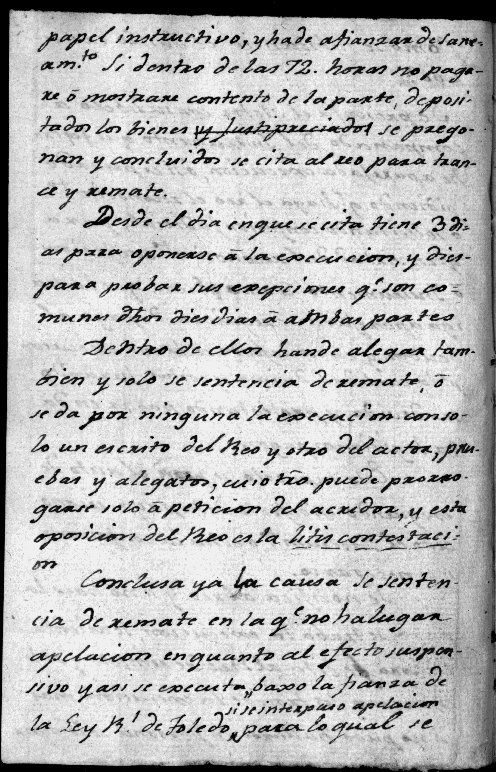 papel instructivo, y ha de afianzar de sane-
am.to Si dentro de las 72. horas no paga-
re ō mostrare contento de la parte, deposi-
tados los bienes y Justipreciados se prego-
nan y concluidos se cita al reo para tran-
ce y remate.
Desde el dia en que se cita tiene 3 di-
as para oponerse ā la execucion, y dies-
para probar sus exepciones q.e son co-
munes dhos dies dias ā ambas partes
Dentro de ellos han de alegar tam-
bien y solo se sentencia de remate, ō
se da por ninguna la execucion con so-
lo un escrito del Reo y otro del actor, pru-
ebas y alegatos, cuio trño. puede prorro-
garse solo ā peticion del acridor, y esta
oposicion del Reo es la litis contestaci-
on
Conclusa ya la causa se senten-
cia de remate en la q.e no ha lugar
apelacion en quanto al efecto suspen-
sivo y asi se executa, baxo la fianza de
si se interpuso apelacion
la Ley R.l de Toledo, para lo qual se